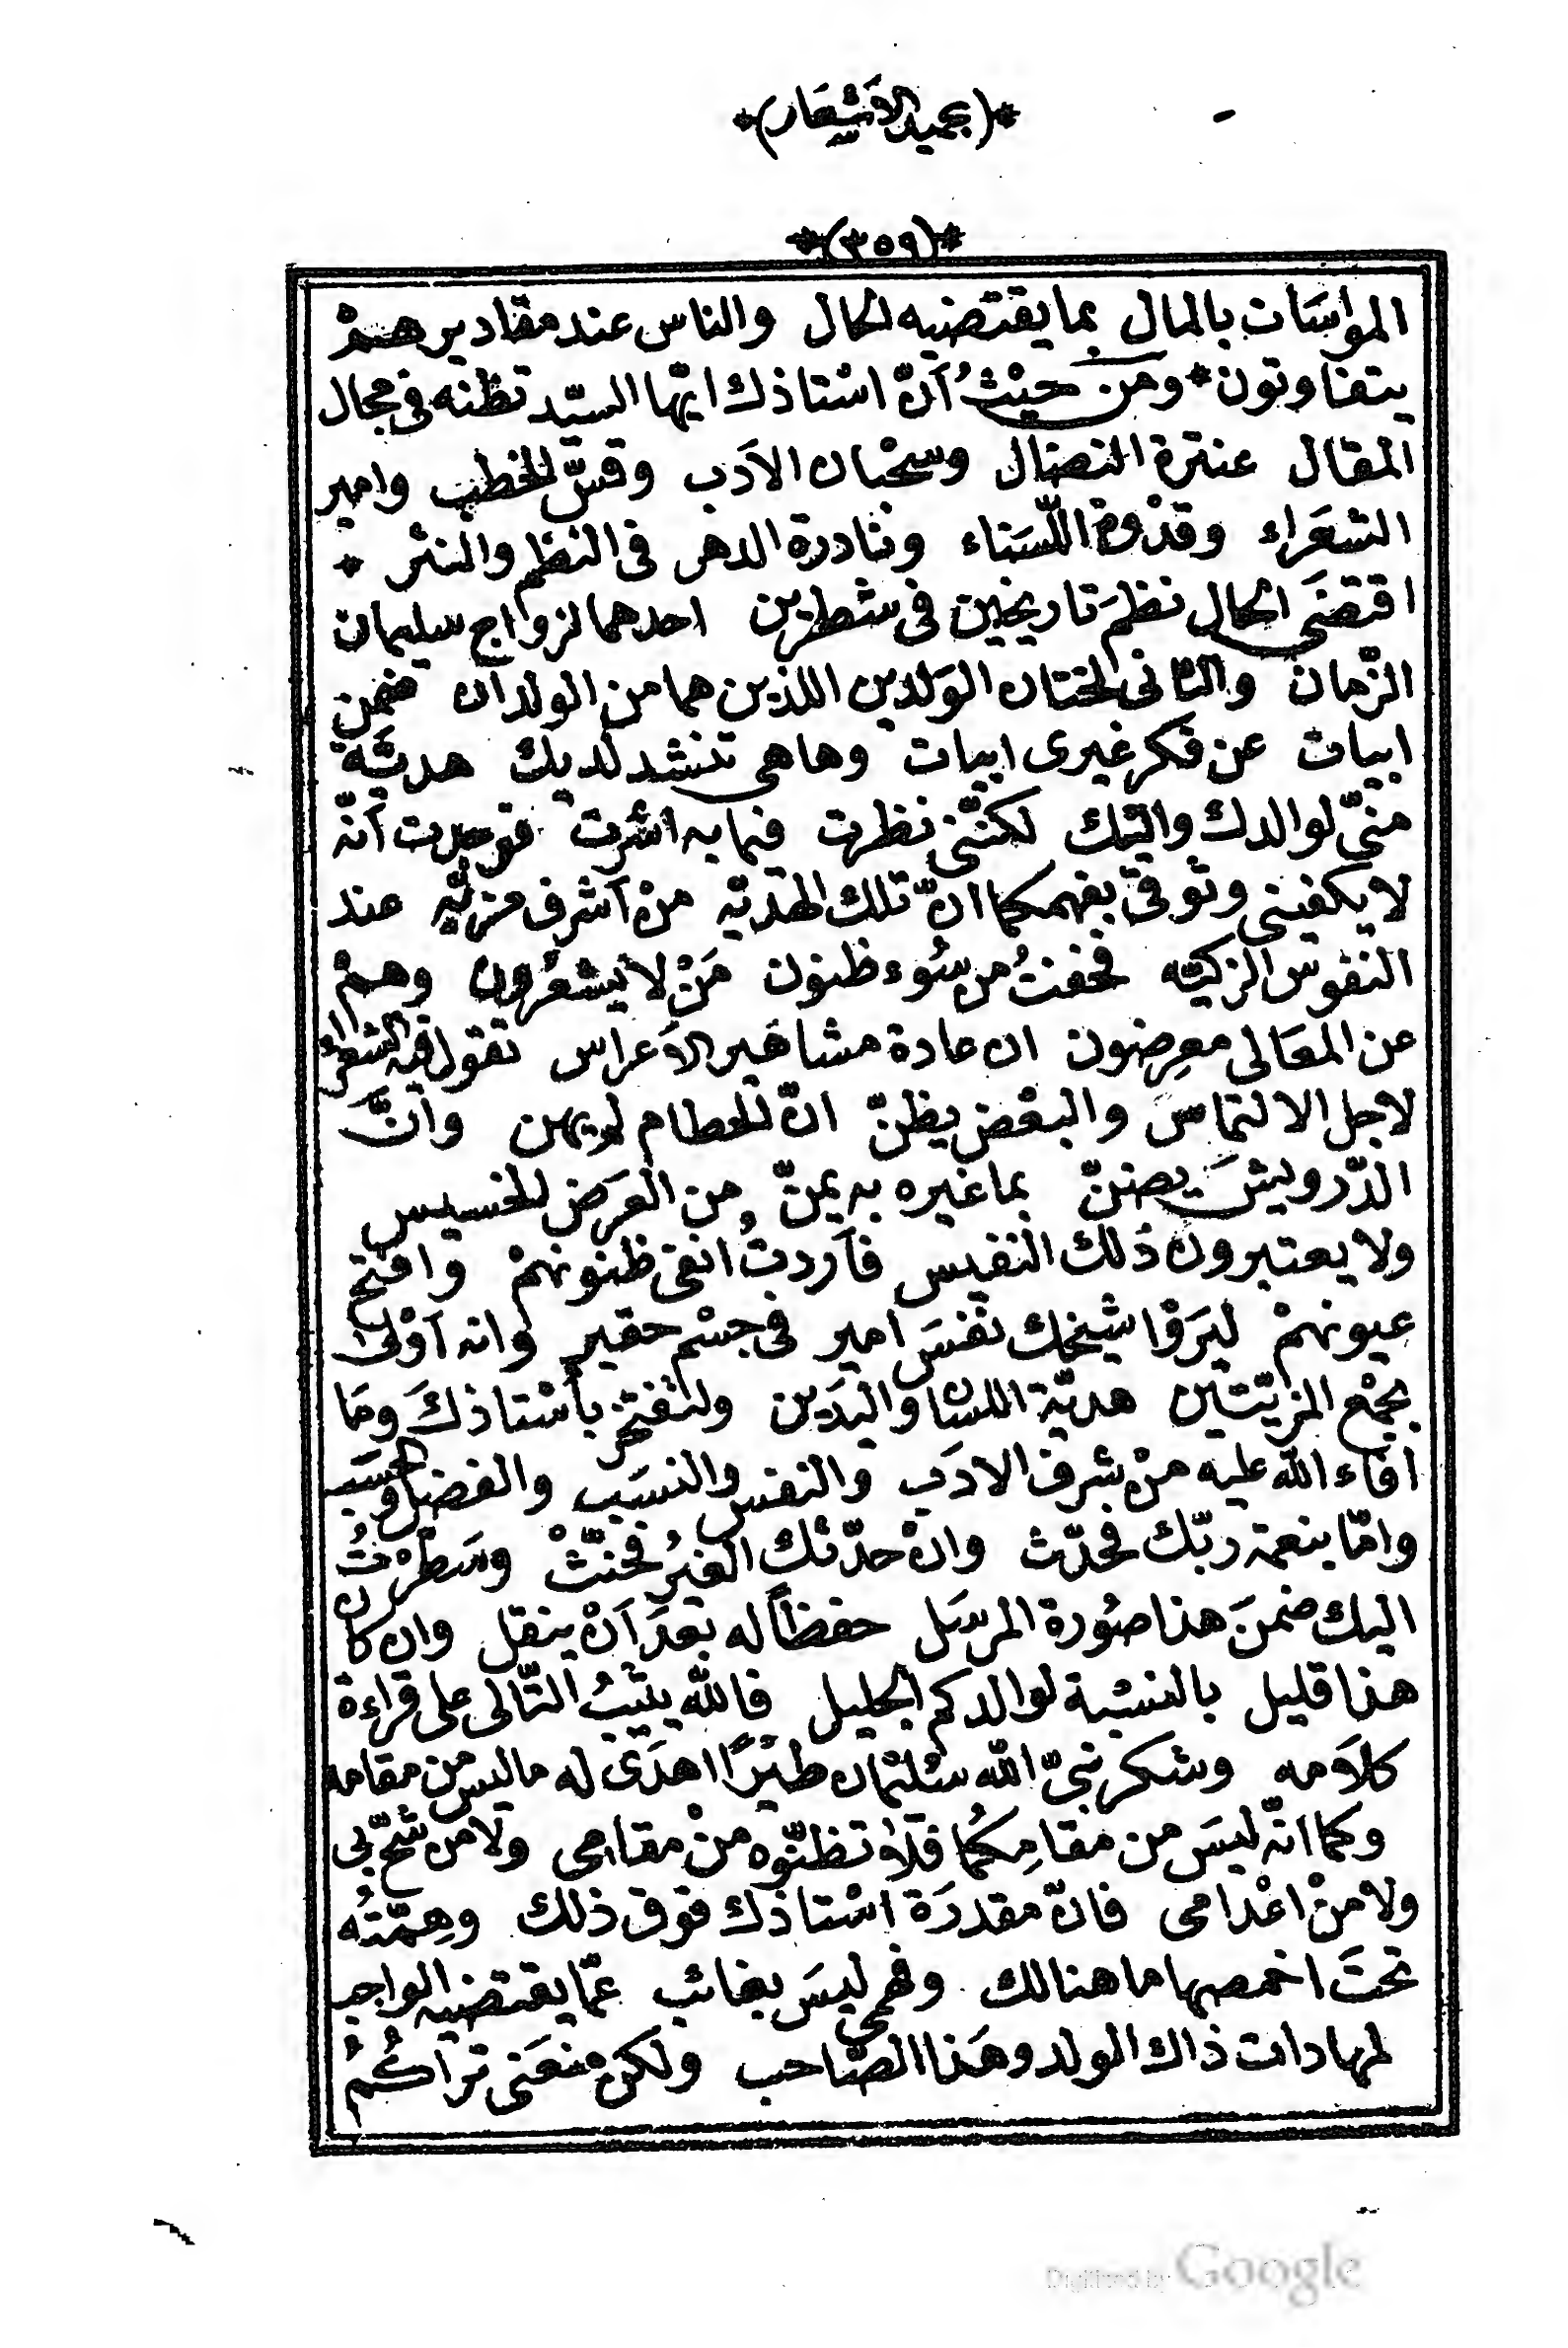 *(بحميد الأشعار)*
*(٣٥٩)*
المواسَات بالمال بما يقتضيه الحال والناس عند مقاديرهمْ
يتفاوتون * ومن حيْثُ أنّ اسْتاذك ايّها السيّد تظنه فى مجال
المقال عنترة النضال وسحْبان الأدب وقسّ الخطب وامير
الشعَراء وقدْوة اللّسَناء ونادرة الدهر فى النظم والنثر *
اقتضَى الحال نظمَ تاريخين فى شطرين احدهما لزواج سليمان
الزّمان والثانى لختان الوَلدين اللذين هما من الولدان ضمن
ابيات عن فكر غيرى ابيات وها هى تنشد لديك هديّة
منّى لوالدك واليك لكنّنى نظرت فيما به اشرت فوجدت أنّه
لا يكفينى وثوقى بفهمكما انّ تلك الهديّه منْ أشرف مزيّه عند
النفوس الزكيّه فخفتُ من سُوء ظنون مَنْ لا يشعُرون وهمْ
عن المعَالى معرِضون ان عادة مشاهَير الأعراس تقول فيه الشعراء
لاجل الالتماسَ والبعْض يظنّ انّ للحطام لديهن وأنَّ
الدّرويشَ يضننّ بما غيره به يمنّ من العرَض الخسيس
ولا يعتبرون ذلك النفيس فأردتُ انفى ظنونهمْ وافتح
عيونهمْ ليَروْا شيخك نفسَ امير فى جسْم حقير وانه أوْلى
بجمْع المزيّتيْن هديّة اللسَان واليدَين ولتفتخرْ بأسْتاذكَ ومَا
افاء الله عليه منْ شرف الادَب والنفس والنسَب والفضل والحسَب
وامّا بنعمة ربّك فحدّث وانْ حدّثك الغيرُ فحنّثْ وسَطرْتُ
اليك ضمنَ هذا صُورة المرسَل حفظاً له بعدَ أنْ ينقل وان كان
هذا قليل بالنسْبة لوالدكم الجليل فالله يثيبُ التّالى على قراءة
كلاَمه وشكر نبىّ الله سُليْمان طيْرًا اهدَى له ما ليس من مقامه
وكما انّه ليسَ من مقامِكُما فلاَ تظنّوه منْ مقامى ولا من شحّ بى
ولا منْ اعْدامى فانّ مقدرَة اسْتاذك فوق ذلك وهِمّتُه
تحتَ اخمصها ما هنالك وفهمى ليسَ بغائب عمّا يقتضيه الواجب
لمهادات ذاك الولد وهَذا الصّاحب ولكن منعَنى تراكُمُ
Digitized by Google